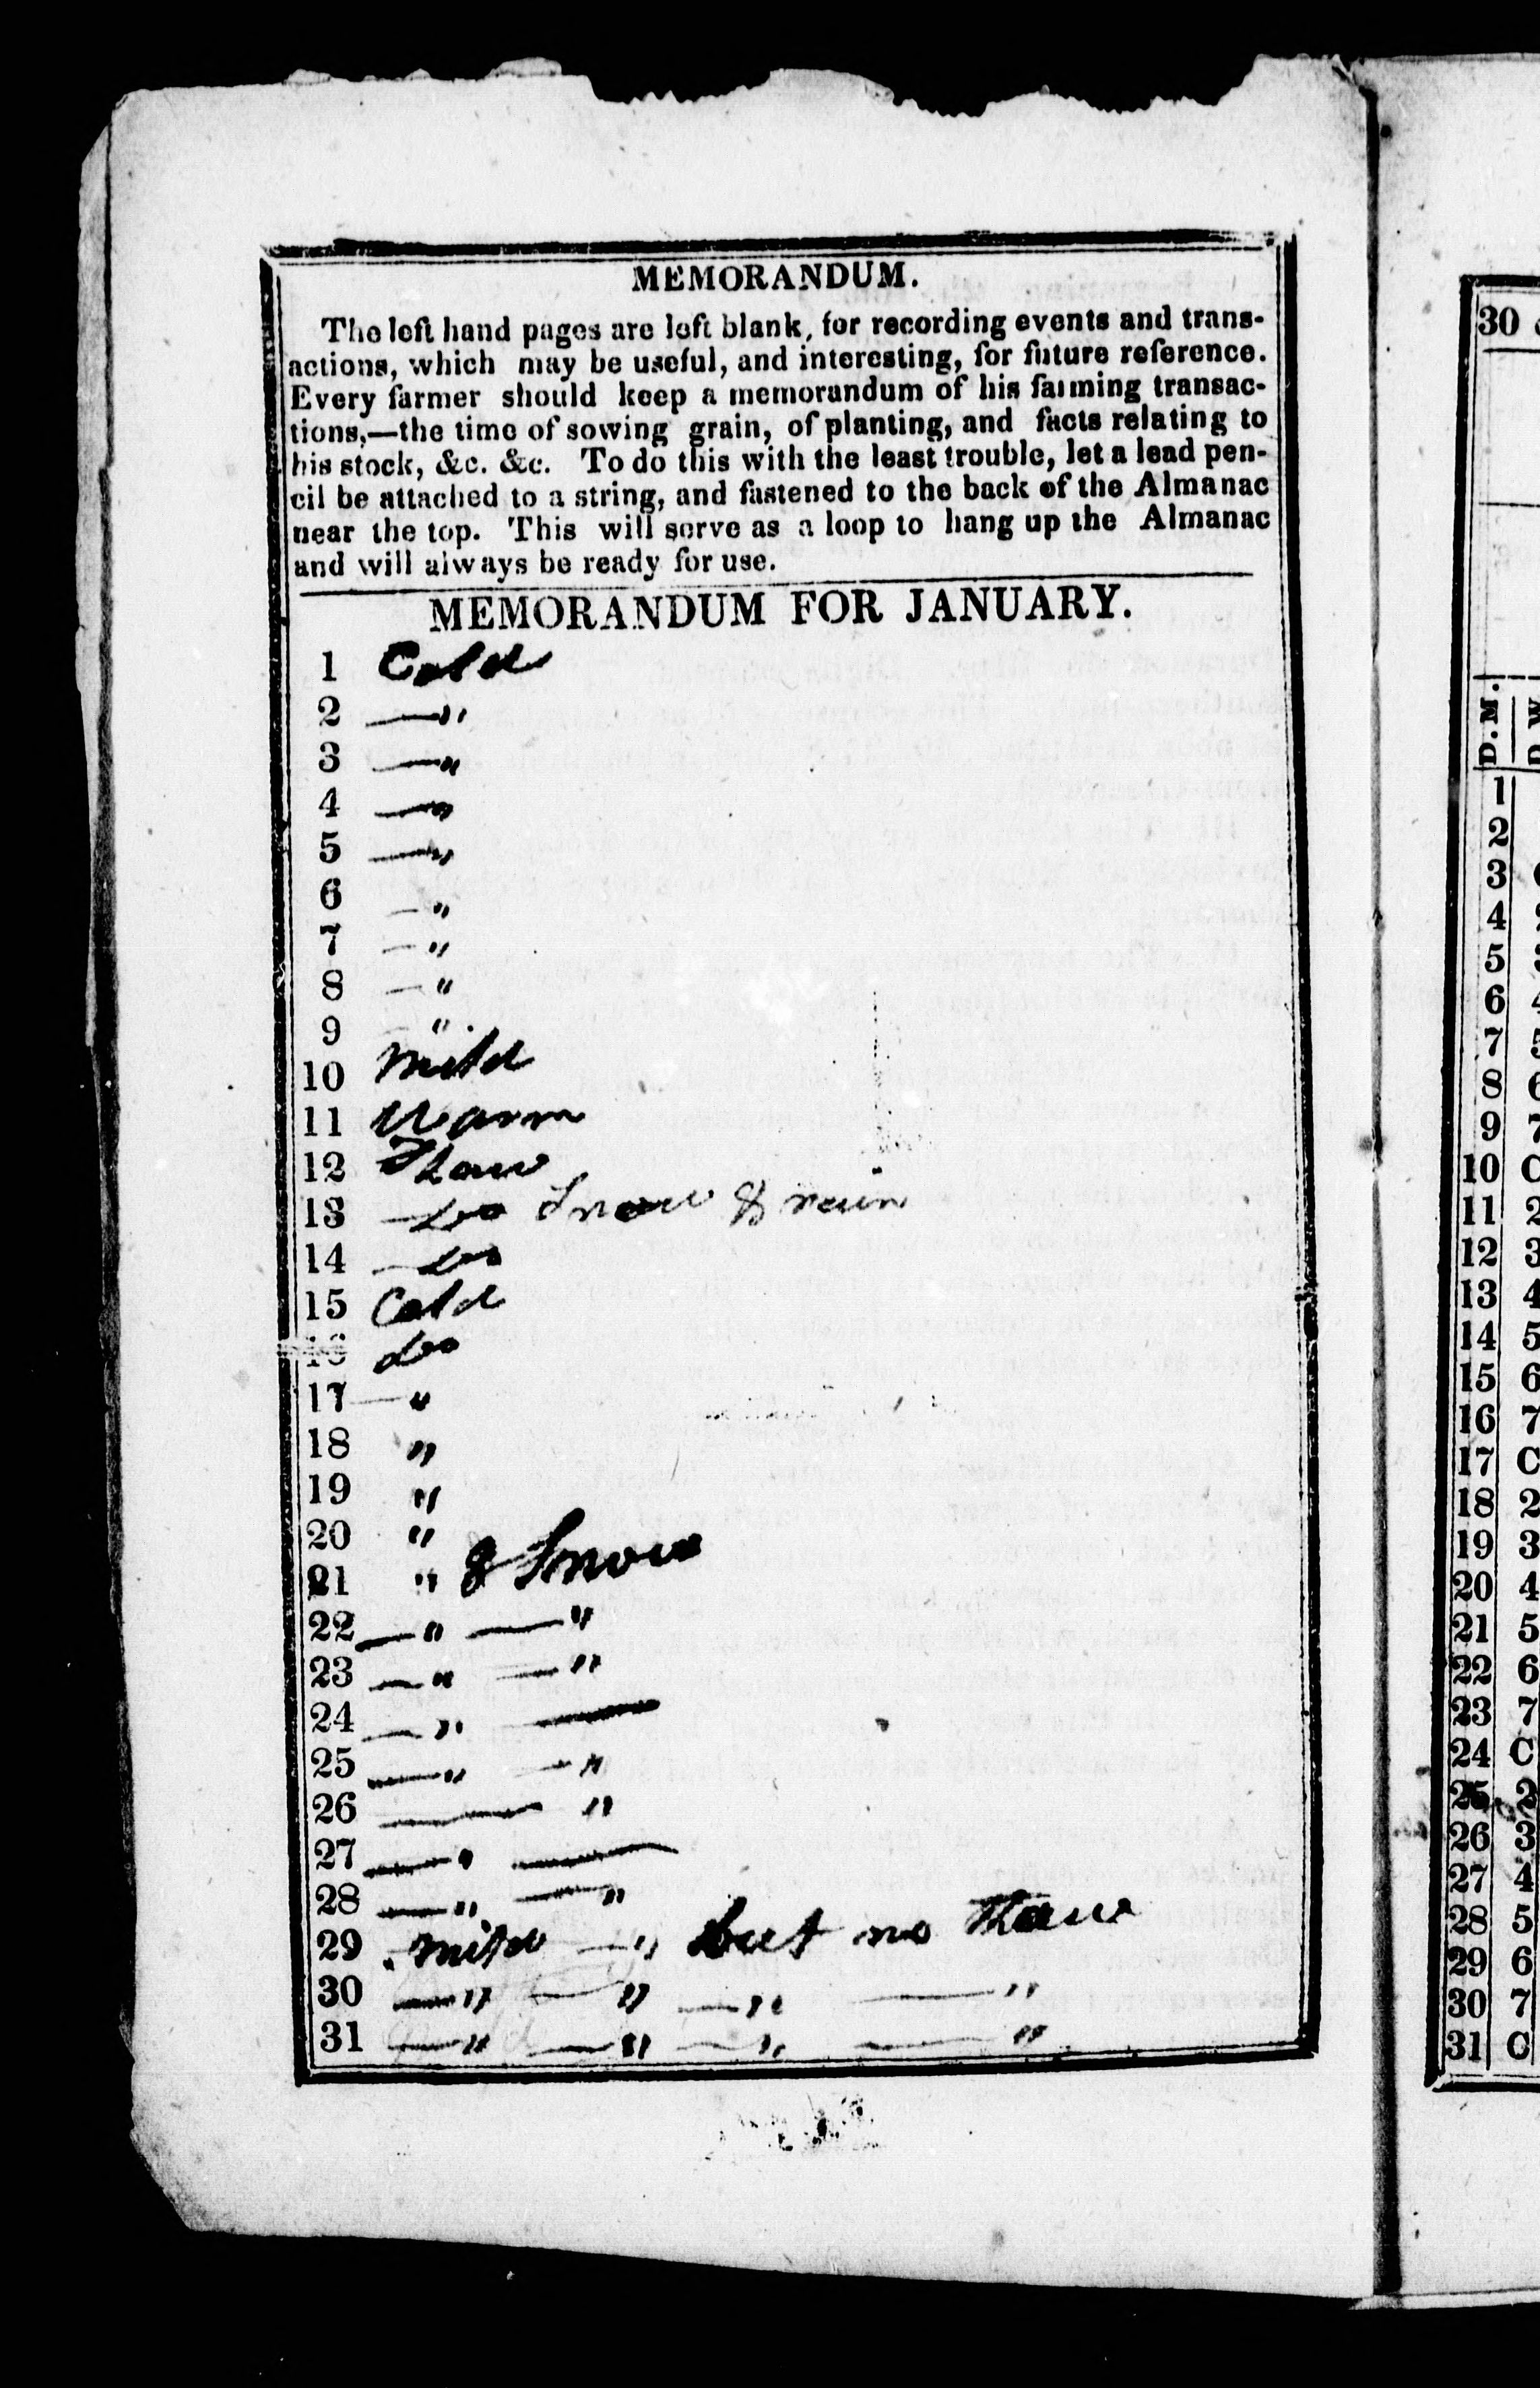 MEMORANDUM.
The left hand pages are left blank, for recording events and trans-
actions, which may be useful, and interesting, for future reference.
Every farmer should keep a memorandum of his farming transac-
tions,—the time of sowing grain, of planting, and facts relating to
his stock, &c. &c. To do this with the least trouble, let a lead pen-
cil be attached to a string, and fastened to the back of the Almanac
near the top. This will serve as a loop to hang up the Almanac
and will always be ready for use.
MEMORANDUM FOR JANUARY.
1 Cold
2 — "
3 — "
4 — "
5 — "
6 — "
7 — "
8 — "
9 — "
10 mild
11 Warm
12 Thaw
13 — do Snow & rain
14 — do
15 Cold
16 do
17 — "
18 "
19 "
20 "
21 " & Snow
22 — " — "
23 — " — "
24 — " —
25 — " — "
26 — "
27 — " —
28 — " — "
29 mild — " but no thaw
30 — " — " — " — "
31 — " — " — " — "
30
D.M.
1
2
3
4
5
6
7
8
9 7
10 C
11 2
12 3
13 4
14 5
15 6
16 7
17 C
18 2
19 3
20 4
21 5
22 6
23 7
24 C
25 2
26 3
27 4
28 5
29 6
30 7
31 C